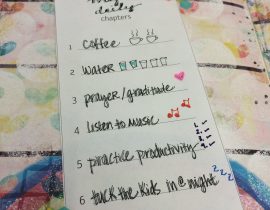 my
daily
chapters
1 Coffee
2 Water
3 prayer/gratitude
4 listen to music
5 practice productivity
6 tuck the kids in @ night
z z z